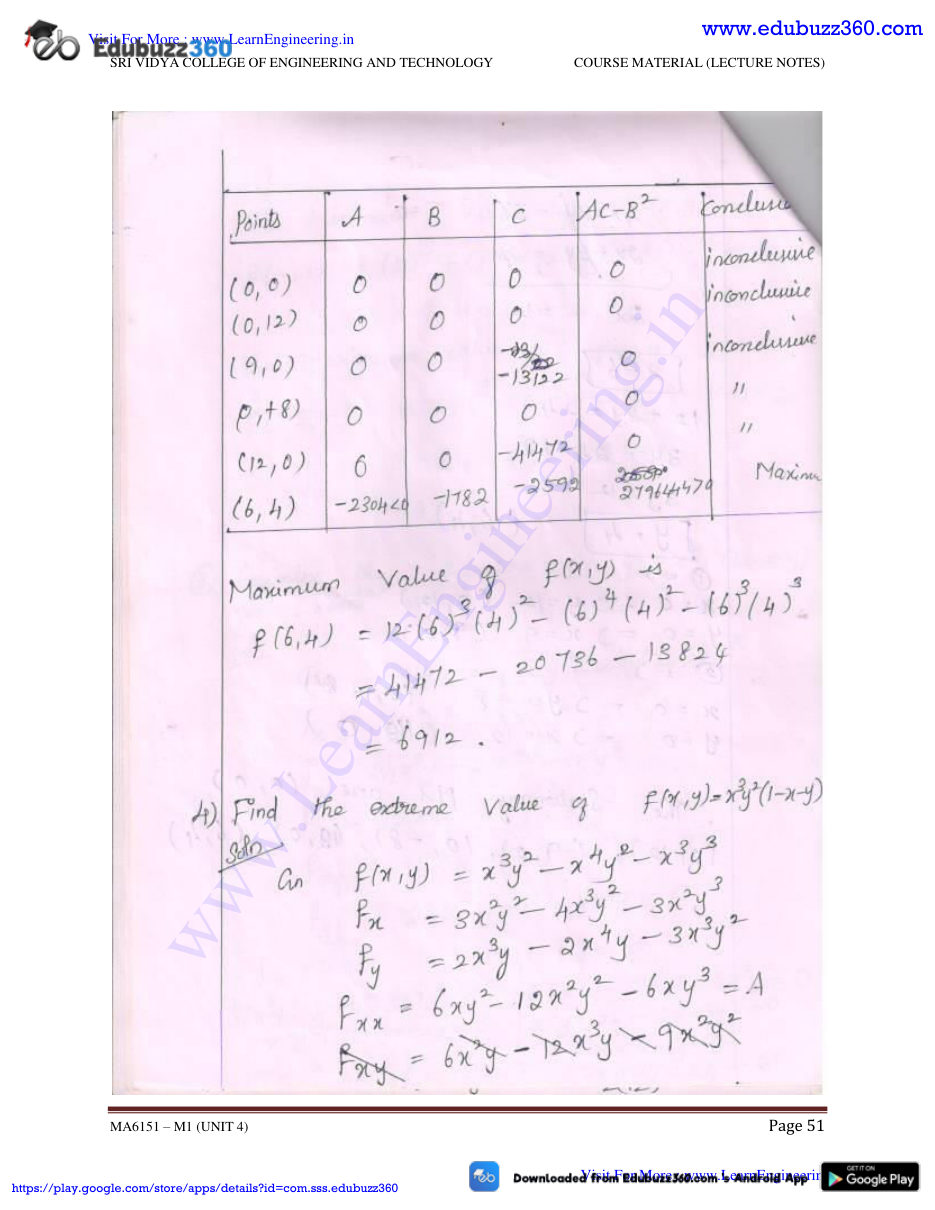 www.edubuzz360.com
Visit For More : www.LearnEngineering.in
Edubuzz360
SRI VIDYA COLLEGE OF ENGINEERING AND TECHNOLOGY COURSE MATERIAL (LECTURE NOTES)
Points A B C AC-B² Conclusi
(0,0) 0 0 0 0 inconclusive
(0,12) 0 0 0 0 inconclusive
(9,0) 0 0 -13122 0 inconclusive
(0,+8) 0 0 0 0 "
(12,0) 0 0 -41472 0 "
(6,4) -2304 -1782 -2592 Maximu
Maximum value of f(x,y) is
f(6,4) = 12·(6)³(4)² - (6)⁴(4)² - (6)³(4)³
= 41472 - 20736 - 13824
= 6912.
4) Find the extreme value of f(x,y)=x³y²(1-x-y)
Soln
Gn f(x,y) = x³y² - x⁴y² - x³y³
fx = 3x²y² - 4x³y² - 3x²y³
fy = 2x³y - 2x⁴y - 3x³y²
fxx = 6xy² - 12x²y² - 6xy³ = A
fxy = 6x²y - 12x³y - 9x²y²
www.LearnEngineering.in
MA6151 – M1 (UNIT 4) Page 51
https://play.google.com/store/apps/details?id=com.sss.edubuzz360
Downloaded from EduBuzz360.com 's Android App
Visit For More : www.LearnEngineerin
GET IT ON
Google Play